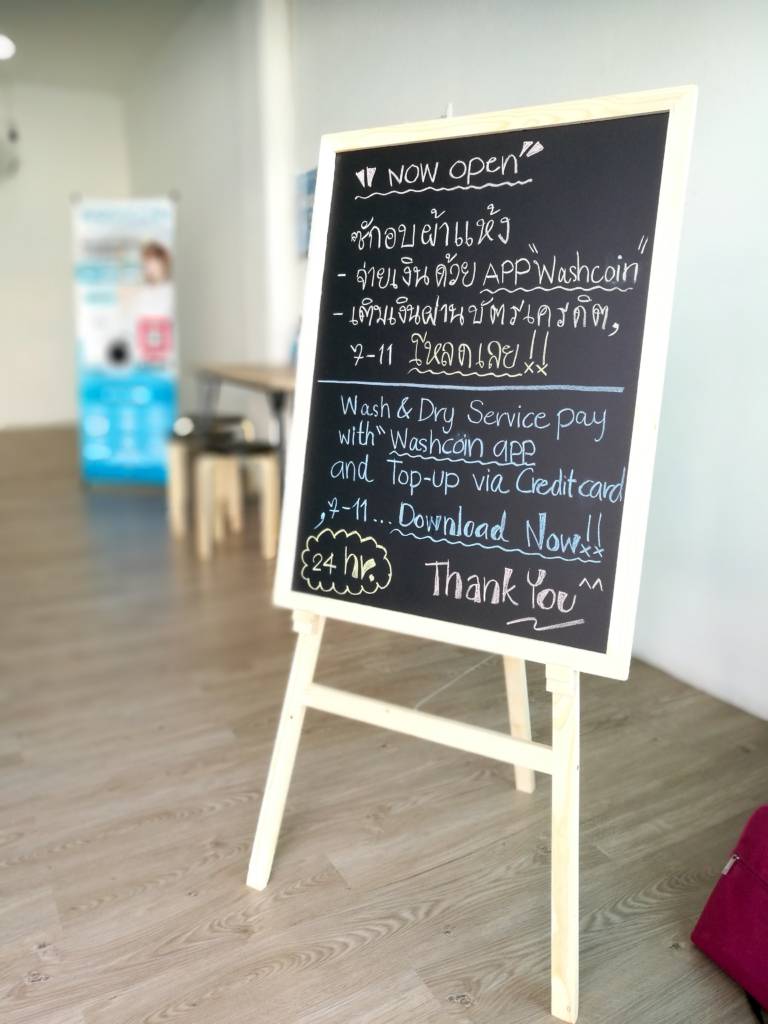 "NOW open"
ซักอบผ้าแห้ง
- จ่ายเงินด้วย APP "Washcoin"
- เติมเงินผ่านบัตรเครดิต,
7-11 โหลดเลย!!
Wash & Dry Service pay
with "Washcoin app
and Top-up via Credit card
,7-11... Download Now!!
24 hr.
Thank You ^^